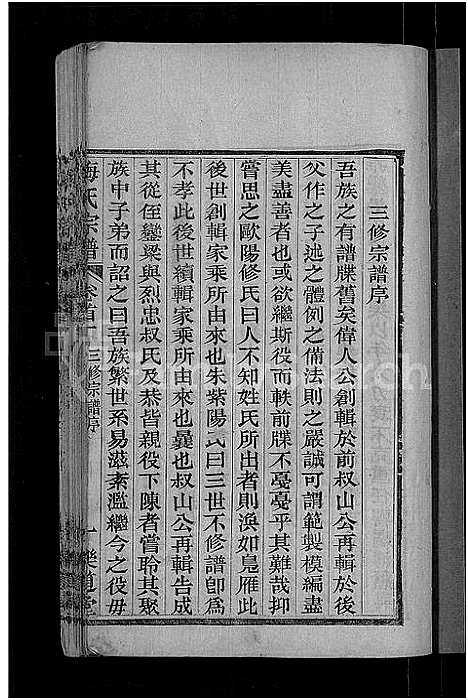 三修宗譜序
吾族之有譜牒舊矣偉人公創輯於前叔山公再輯於後
父作之子述之體例之備法則之嚴誠可謂範製模編盡
美盡善者也或欲繼斯役而軼前牒不戞戞乎其難哉抑
嘗思之歐陽修氏曰人不知姓氏所出者則渙如鳧雁此
後世創輯家乘所由來也朱紫陽氏曰三世不修譜卽爲
不孝此後世續輯家乘所由來也曩也叔山公再輯告成
其從侄鑾梁與烈忠叔氏及恭皆親役下陳者嘗聆其聚
族中子弟而詔之曰吾族繁世系易滋紊濫繼今之役毋
梅氏宗譜 卷首 三修宗譜序 一 樂道堂